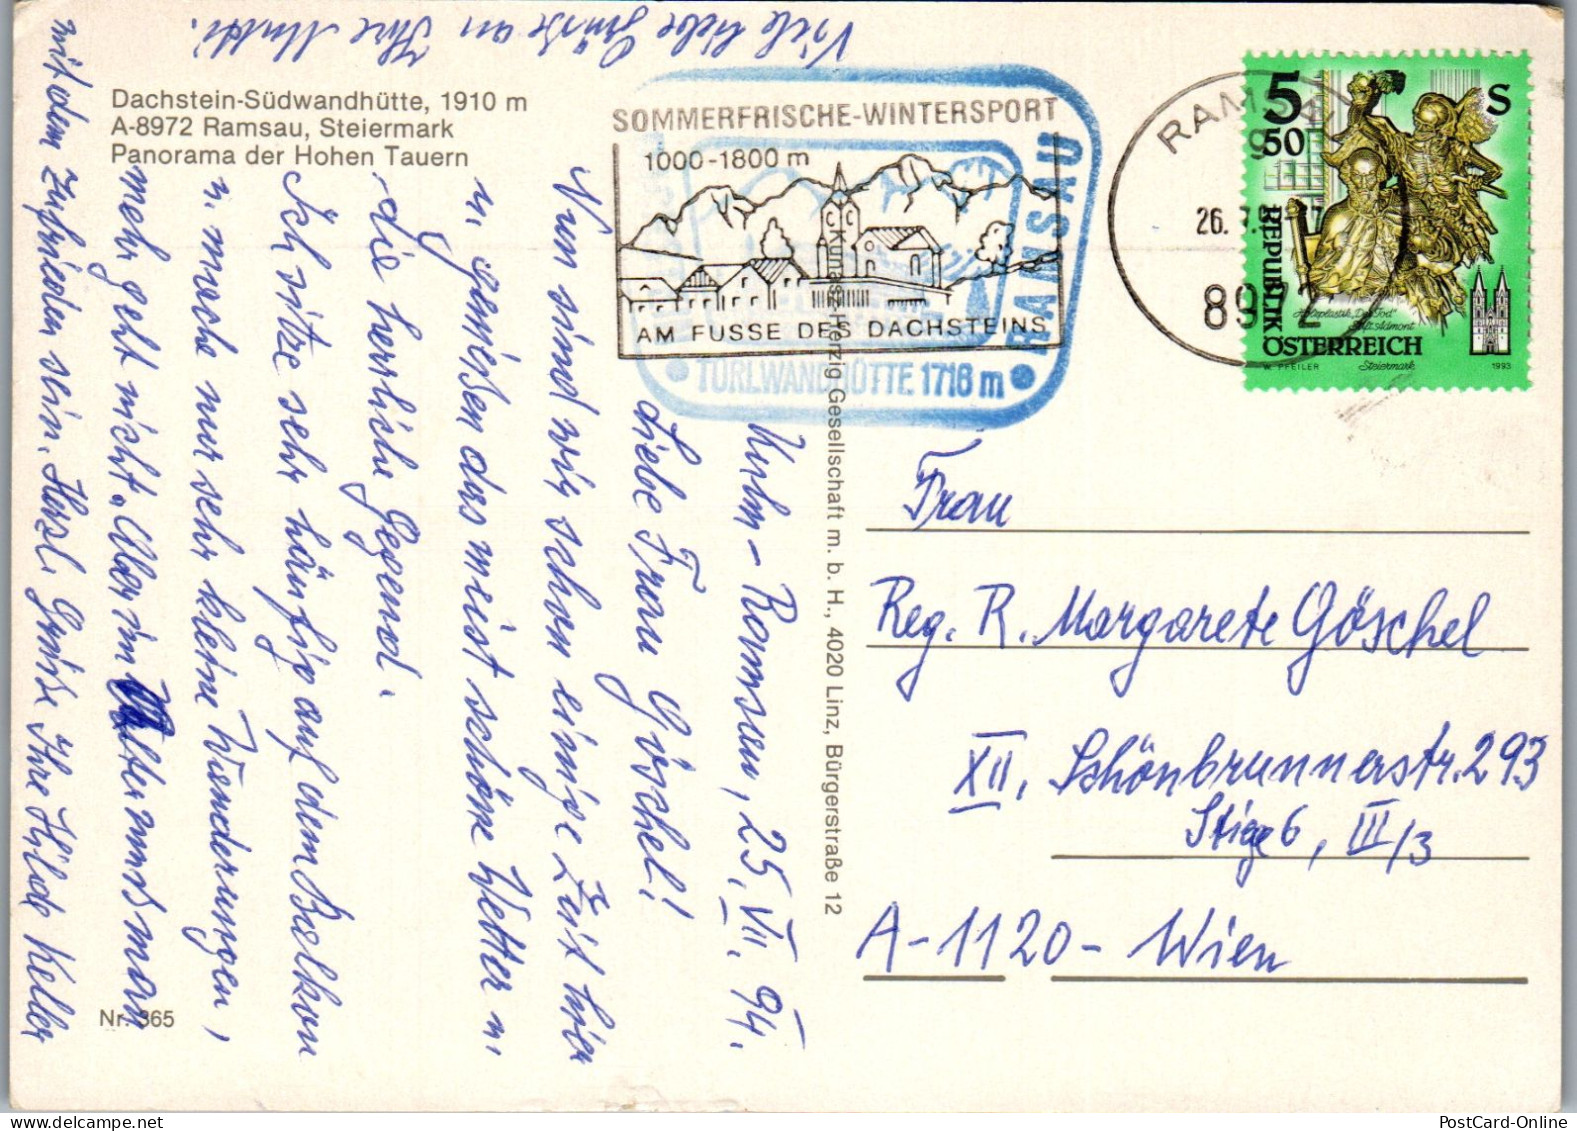 Dachstein-Südwandhütte, 1910 m
A-8972 Ramsau, Steiermark
Panorama der Hohen Tauern
SOMMERFRISCHE-WINTERSPORT
1000-1800 m
AM FUSSE DES DACHSTEINS
RAMSAU
TÜRLWANDHÜTTE 1716 m
26. 7.
5 50 S
REPUBLIK
ÖSTERREICH
Holzplastik „Der Tod"
Stift Admont
Steiermark
W. PFEILER
1993
C. Kunasz-Herzig Gesellschaft m. b. H., 4020 Linz, Bürgerstraße 12
Nr. 365
Ramsau, 25. VII. 94.
Liebe Frau Göschel!
Nun sind wir schon einige Zeit hier
u. genießen das meist schöne Wetter u.
die herrliche Gegend.
Ich sitze sehr häufig auf dem Balkon
u. mache nur sehr kleine Wanderungen,
mehr geht nicht. Aber im Alter muss man
mit dem zufrieden sein. Herzl. Grüße Ihre Hilde Keller
Viele liebe Grüße an Ihre Mutti.
Frau
Reg. R. Margarete Göschel
XII. Schönbrunnerstr. 293
Stiege 6, III/3
A-1120-Wien